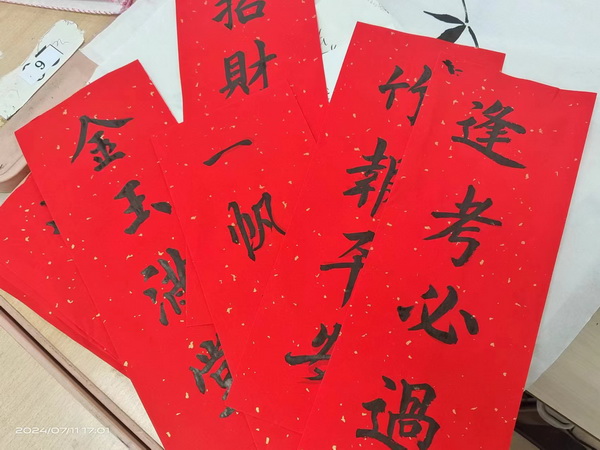 金玉滿堂
招財
一帆
竹報平安
逢考必過
2024/07/11 17:01